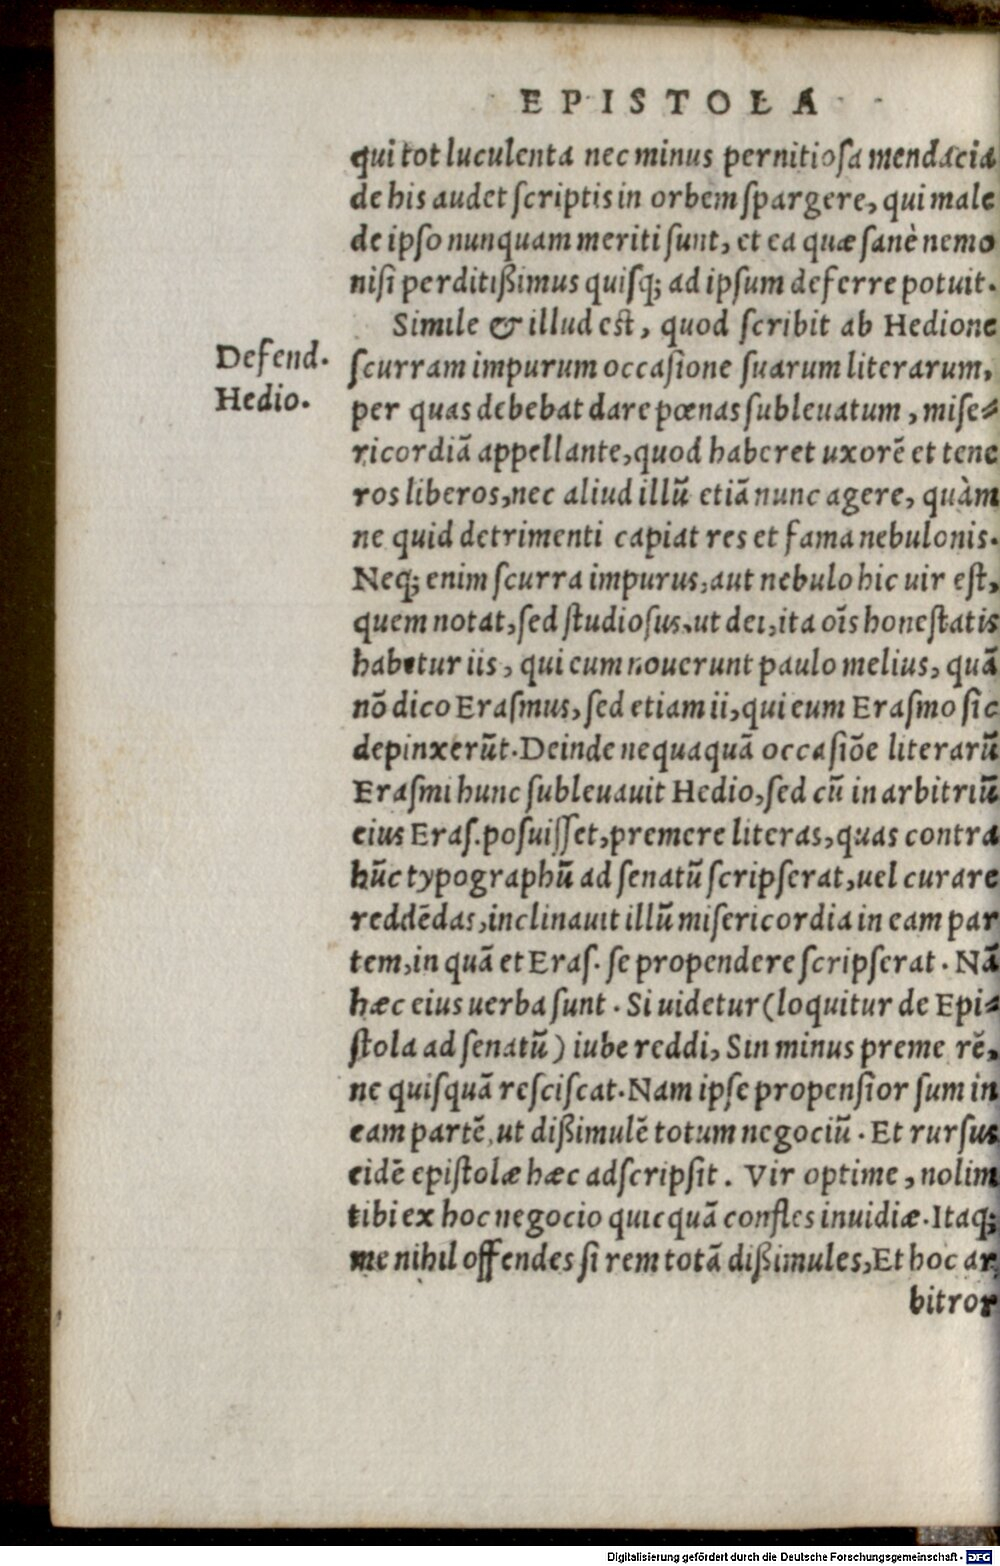 EPISTOLA
qui tot luculenta nec minus pernitiosa mendacia
de his audet scriptis in orbem spargere, qui male
de ipso nunquam meriti sunt, et ea quæ sanè nemo
nisi perditißimus quisq; ad ipsum deferre potuit.
Simile & illud est, quod scribit ab Hedione
Defend.
Hedio.
scurram impurum occasione suarum literarum,
per quas debebat dare pœnas subleuatum, mise-
ricordiã appellante, quod haberet uxorẽ et tene
ros liberos, nec aliud illũ etiã nunc agere, quàm
ne quid detrimenti capiat res et fama nebulonis.
Neq; enim scurra impurus, aut nebulo hic uir est,
quem notat, sed studiosus, ut dei, ita oĩs honestatis
habetur iis, qui eum nouerunt paulo melius, quã
nõ dico Erasmus, sed etiam ii, qui eum Erasmo sic
depinxerũt. Deinde nequaquã occasiõe literarũ
Erasmi hunc subleuauit Hedio, sed cũ in arbitriũ
eius Eras. posuisset, premere literas, quas contra
hũc typographũ ad senatũ scripserat, uel curare
reddẽdas, inclinauit illũ misericordia in eam par
tem, in quã et Eras. se propendere scripserat. Nã
hæc eius uerba sunt. Si uidetur (loquitur de Epi-
stola ad senatũ) iube reddi, Sin minus preme rẽ,
ne quisquã resciscat. Nam ipse propensior sum in
eam partẽ, ut dißimulẽ totum negociũ. Et rursus
eidẽ epistolæ hæc adscripsit. Vir optime, nolim
tibi ex hoc negocio quicquã confles inuidiæ. Itaq;
me nihil offendes si rem totã dißimules, Et hoc ar
bitror
Digitalisierung gefördert durch die Deutsche Forschungsgemeinschaft - DFG